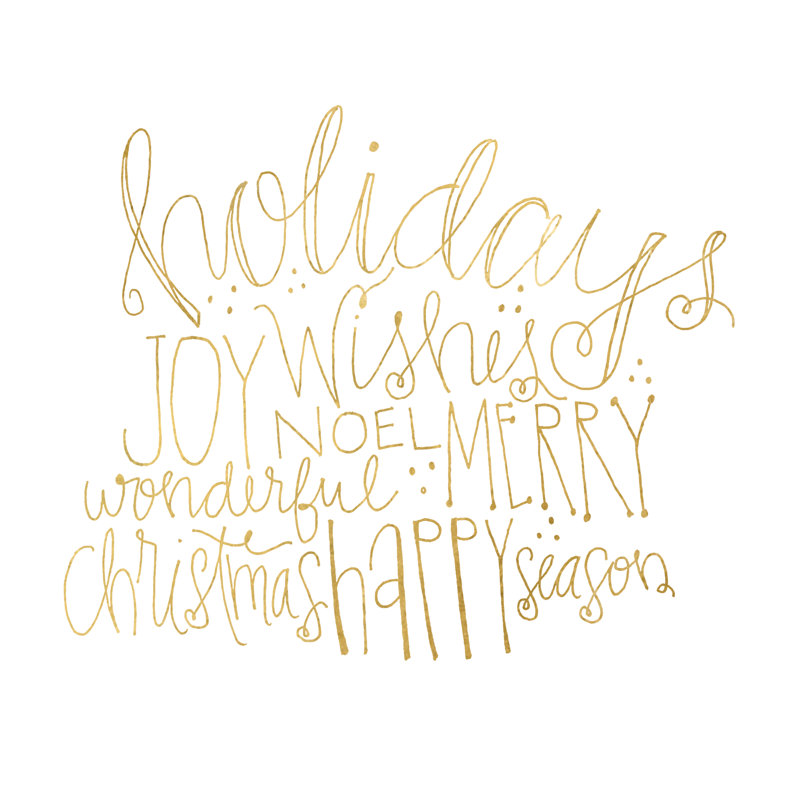 holidays
JOY Wishes
NOEL MERRY
wonderful
christmas happy season